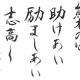 助けあい
励ましあい
志高く